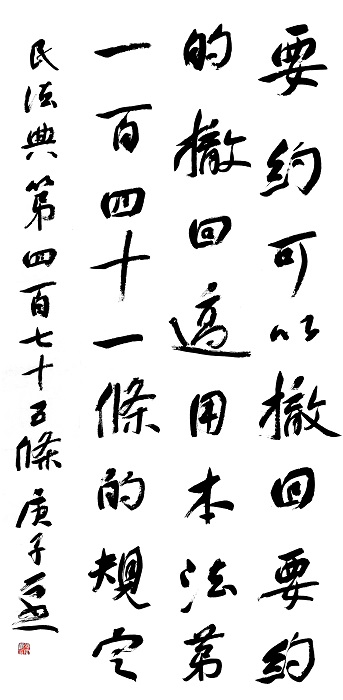 要约可以撤回要约
的撤回適用本法第
一百四十一條的規定
民法典第四百七十五條庚子